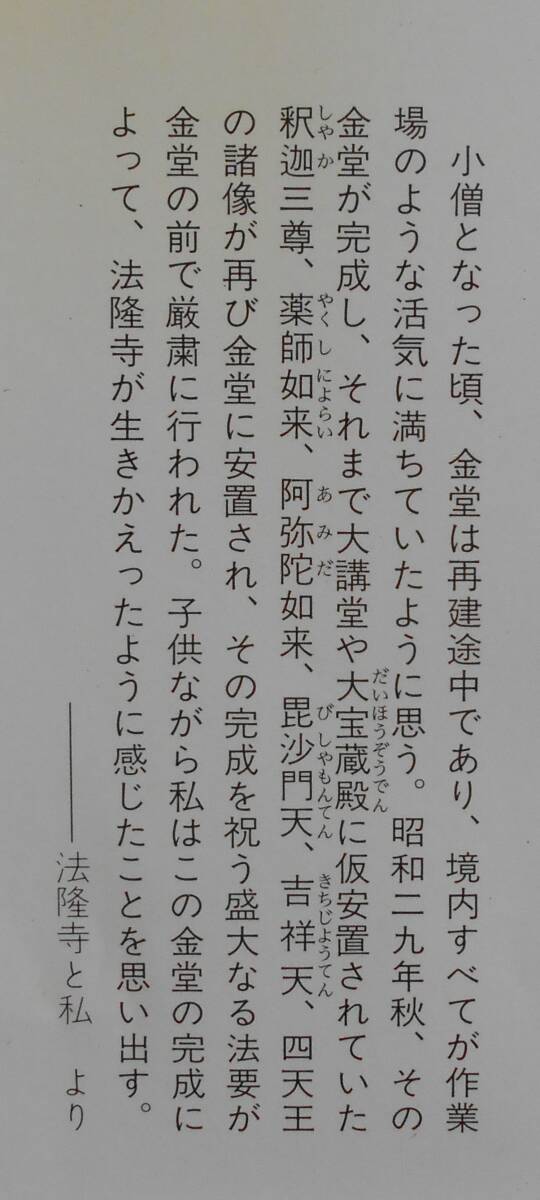 小僧となった頃、金堂は再建途中であり、境内すべてが作業
場のような活気に満ちていたように思う。昭和二九年秋、その
金堂が完成し、それまで大講堂や大宝蔵殿に仮安置されていた
釈迦三尊、薬師如来、阿弥陀如来、毘沙門天、吉祥天、四天王
の諸像が再び金堂に安置され、その完成を祝う盛大なる法要が
金堂の前で厳粛に行われた。子供ながら私はこの金堂の完成に
よって、法隆寺が生きかえったように感じたことを思い出す。
――法隆寺と私　より